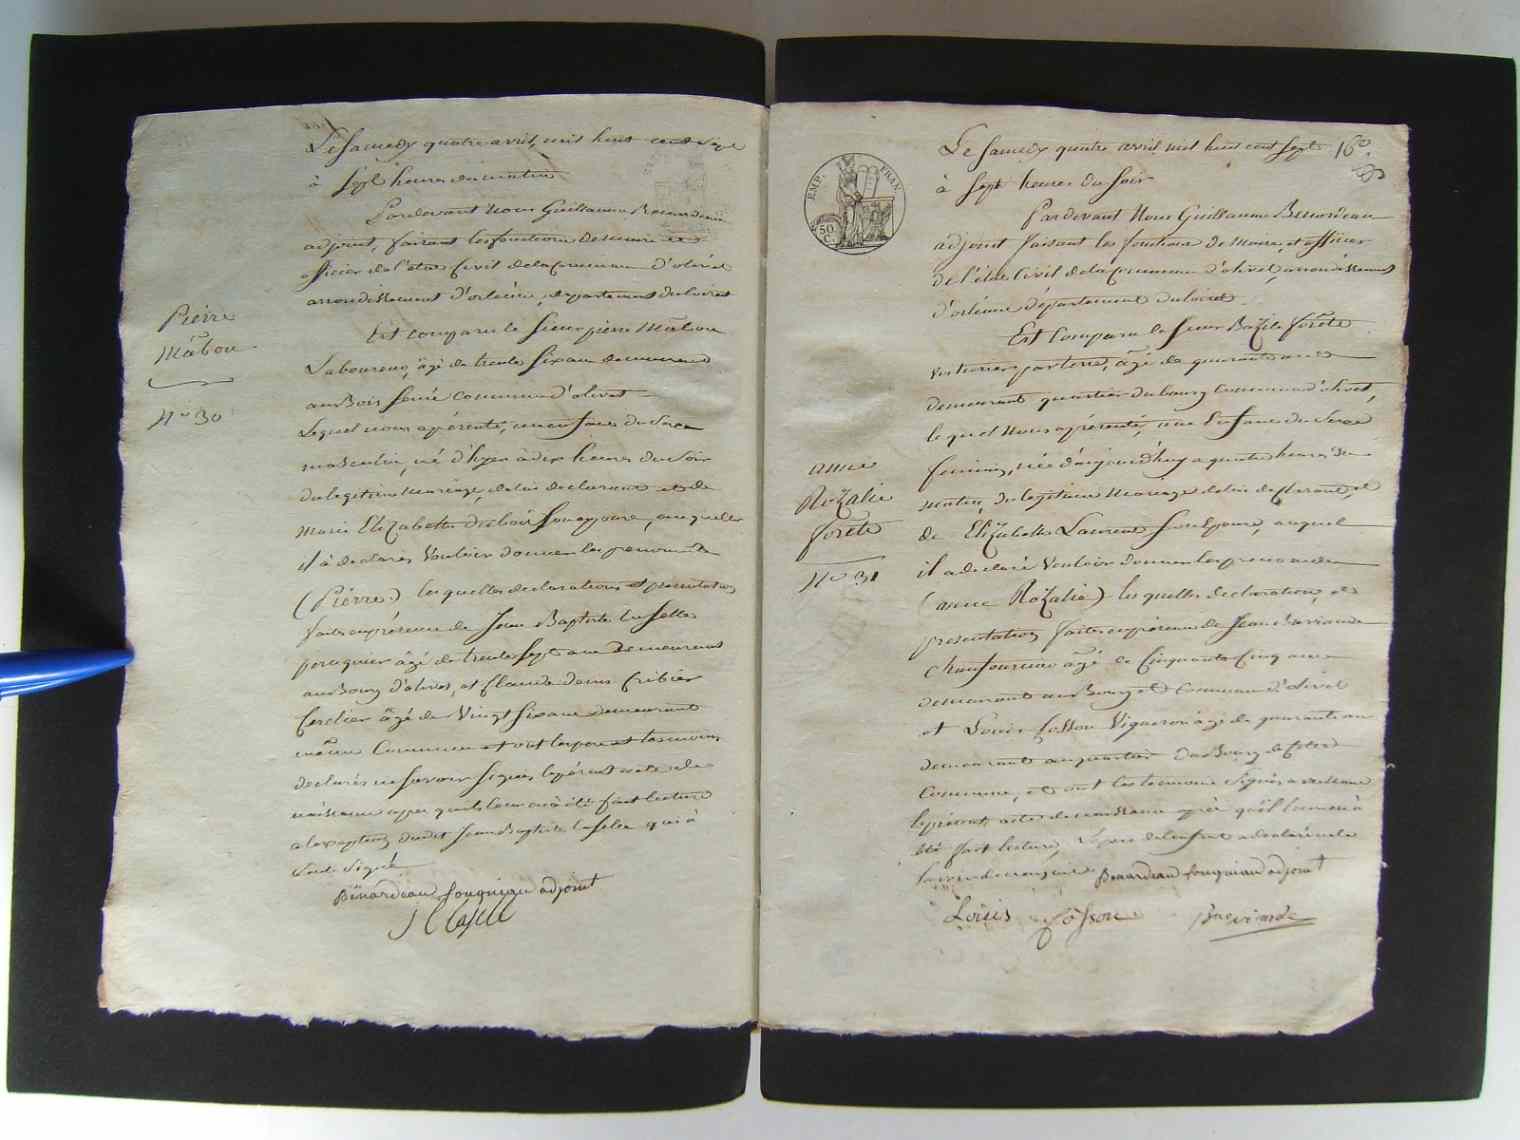 Le Samedy quatre avril, mil huit cent Sept
à Sept heures du matin
Pardevant Nous Guillaume Benardeau
adjoint, faisant les fonctions de maire et
officier de l'état Civil de la Commune d'olivet
arrondissement d'orléans, département du loiret
Est comparu le Sieur pierre Mâbou
Laboureur, âgé de trente Six ans demeurant
au Bois Semé Commune d'olivet
Lequel nous a présenté, un enfant du Sexe
masculin, né d'hyer à dix heures du Soir
du legitime mariage, de lui declarant et de
Marie Elizabethe duboir Son epouse, auquelle
il à declarés Vouloir donner les prenoms de
(Pierre) les quelles declarations et presentation
faites en présence de Jean Baptiste
peruquier âgé de trente Sept ans Demeurant
au Bourg d'olivet, et Claude denis Cribier
Cerclier âgé de Vingt Six ans demeurant
même Commune et ont le pere et temoins
declarés ne Savoir Signer, le présent acte de
naissance apres quils leur en à été fait lecture
a lexeption dudit Jean Baptiste qui à
Soute Signé
Bénardeau fougniau adjoint
J Laselle
Pierre
Mâbou
Nº 30
Le Samedy quatre avril mil huit cent Sept
16e
à Sept heures du Soir
EMP. FRAN.
50
C.
Pardevant Nous Guillaume Benardeau
adjoint faisant les fonctions de Maire, et officier
de l'état Civil de la Commune d'olivet, arrondissement
d'orléans département du loiret
Est Comparu le Sieur Bazile forête
par terre, âgé de quarante ans
demeurant quartier du bourg Commune d'olivet,
lequel Nous a présenté, une Enfant du Sexe
feminin, née d'aujourd'huy a quatre heures du
matin, du legitime Mariage de lui declarant, et
de Elizabethe Laurent Son Epouse, auquel
il a declaré Vouloir donner les prenoms de
(anne Rozalie) les quelles declaration, et
presentation faites en présence de Jean
chaufournier âgé de Cinquante Cinq ans
demeurant au Bourg et Commune d'olivet
et Louis Cosson Vigneron âgé de quarante ans
demeurant au quartier du Bourg de Cette
Commune, et ont les temoins Signés avec nous
le présent acte de naissance après qu'il leur en a
été fait lecture, le pere de l'enfant a declaré ne le
Savoir de ce enquis Benardeau fougniau adjoint
Louis Cosson
anne
Rozalie
forête
Nº 31